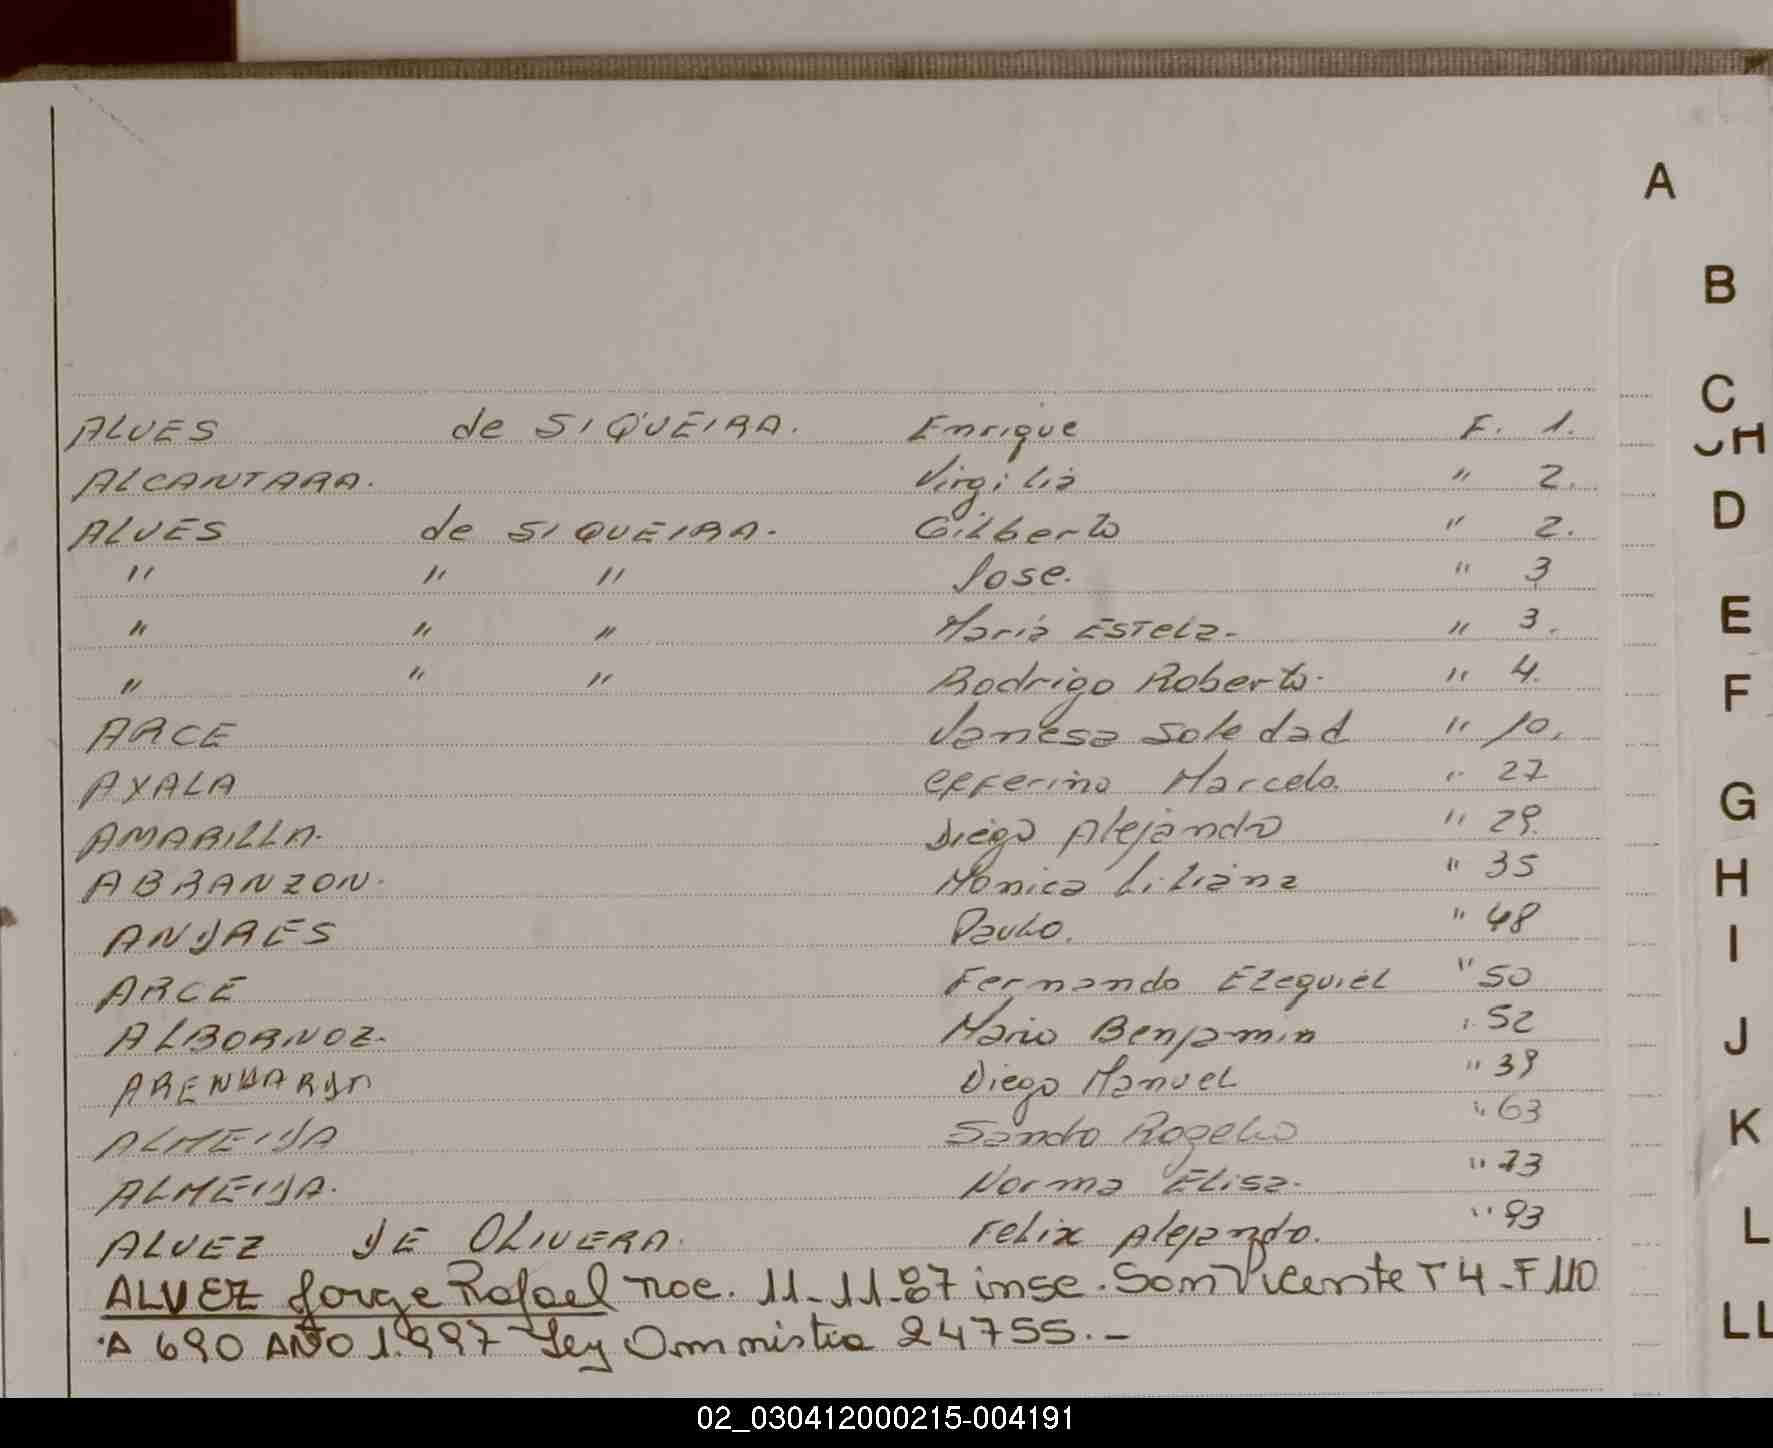 A
B
C
CH
D
E
F
G
H
I
J
K
L
LL
ALVES de SIQUEIRA. Enrique F. 1.
ALCANTARA. Virgilia " 2.
ALVES de SIQUEIRA. Gilberto " 2.
" " " Jose. " 3
" " " Maria Estela. " 3.
" " " Rodrigo Roberto. " 4.
ARCE Vanesa Soledad " 10.
AYALA Cefferino Marcelo. " 27
AMARILLA. Diego Alejandro " 29.
ABRANZON. Monica Liliana " 35
ANDRES Paulo. " 48
ARCE Fernando Ezequiel " 50
ALBORNOZ. Mario Benjamin " 52
ARENHARDT Diego Manuel " 39
ALMEIDA Sandro Rogelio " 63
ALMEIDA. Norma Elisa. " 73
ALVEZ DE OLIVERA. Felix Alejandro. " 93
ALVEZ Jorge Rafael nac. 11-11-87 insc. San Vicente T 4 - F 110
A 690 AÑO 1.997 Ley Ammistia 24755.-
02_030412000215-004191